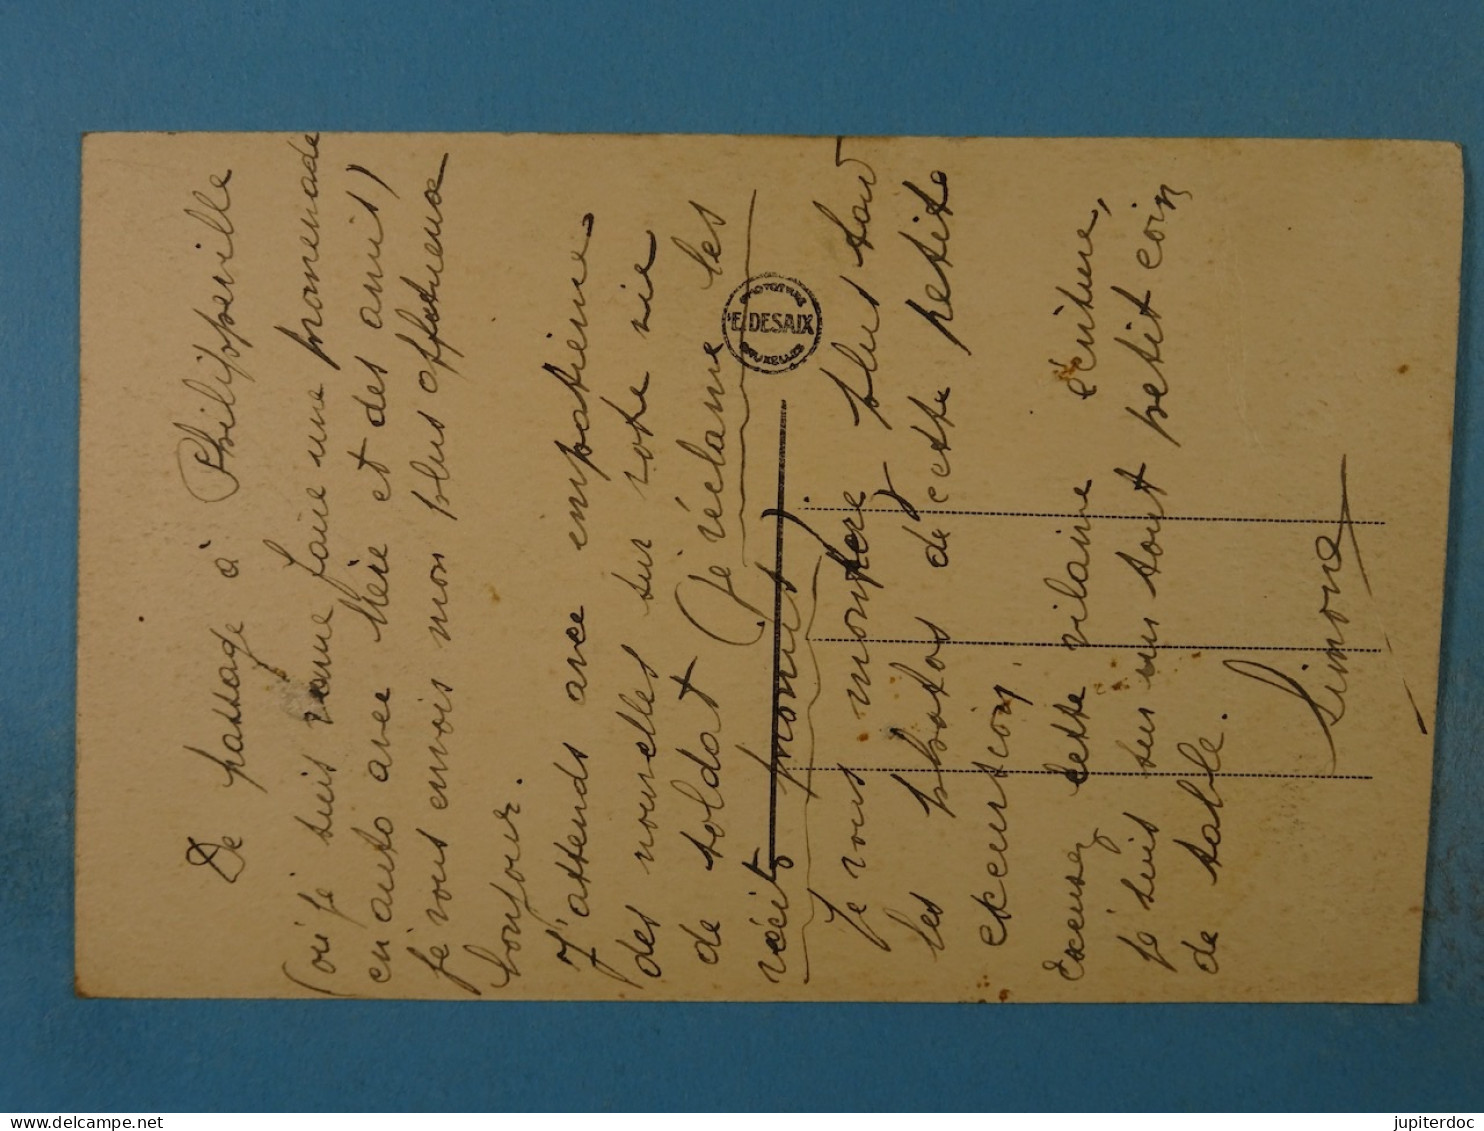 De passage à Philippeville
(où je suis venue faire une promenade
en auto avec Mère et des amis)
je vous envois mon plus affectueux
bonjour.
J'attends avec impatience
des nouvelles sur votre vie
de soldat (je réclame les
récits promis)
Je vous montreré plus tard
les photos de cette petite
excursion.
Excusez cette vilaine écriture,
je suis sur un tout petit coin
de table.
Simone
PHOTOTYPIE
E. DESAIX
BRUXELLES
delcampe.net
jupiterdoc